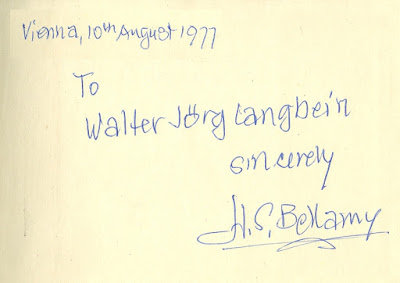 Vienna, 10th August 1977
To
Walter Jörg Langbein
sincerely
H.S. Bellamy